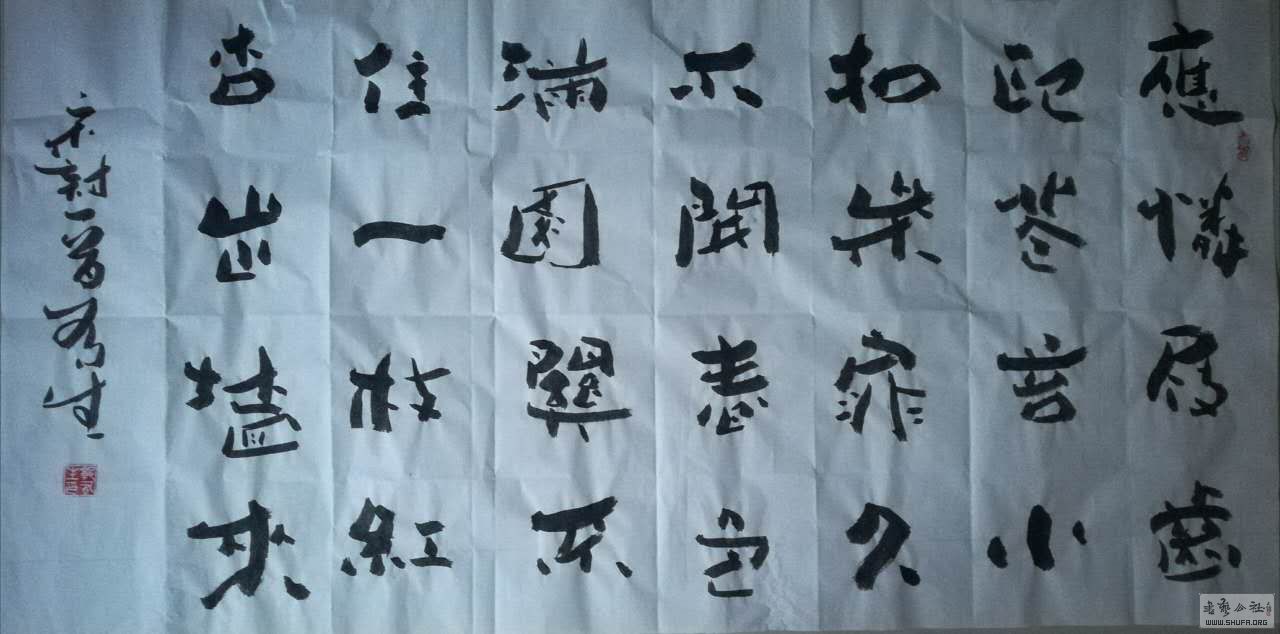 應憐屐齒
印苍苔小
扣柴扉久
不開春色
滿園關不
住一枝紅
杏出墙来
宋詩一首有生
書藝公社
WWW.SHUFA.ORG